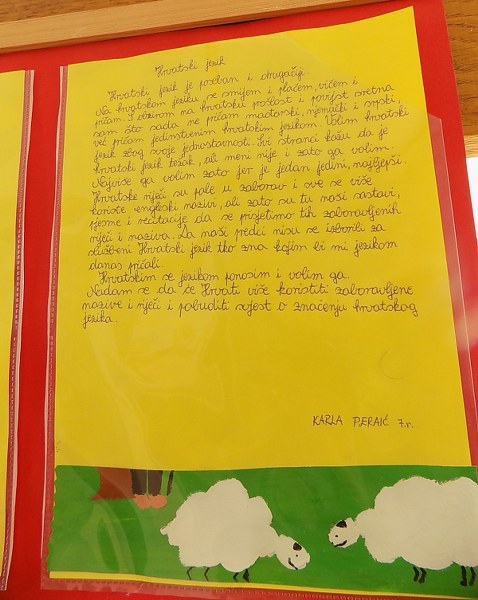 Hrvatski jezik
Hrvatski jezik je poseban i drugačiji.
Na hrvatskom jeziku se smijem i plačem, vičem i
pričam. S obzirom na hrvatsku prošlost i povijest sretna
sam što sada ne pričam mađarski, njemački i srpski,
već pričam jedinstvenim hrvatskim jezikom. Volim hrvatski
jezik zbog svoje jednostavnosti. Svi stranci kažu da je
hrvatski jezik težak, ali meni nije i zato ga volim.
Najviše ga volim zato jer je jedan jedini, najljepši.
Hrvatske riječi su pale u zaborav i sve se više
koriste engleski nazivi, ali zato su tu naši sastavi,
pjesme i recitacije da se prisjetimo tih zaboravljenih
riječi i naziva. Da naši preci nisu se izborili za
službeni Hrvatski jezik tko zna kojim bi mi jezikom
danas pričali.
Hrvatskim se jezikom ponosim i volim ga.
Nadam se da će Hrvati više koristiti zaboravljene
nazive i riječi i pobuditi svijest o značenju hrvatskog
jezika.
KARLA PERAIĆ 7.r.